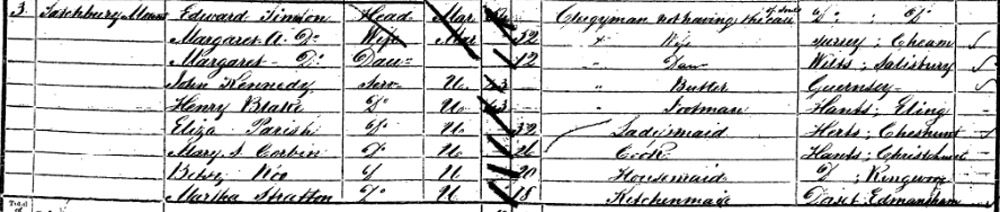 3 Tatchbury Mount Edward Timson Head Mar Clergyman not having the care of souls Do Do
Margaret A. Do Wife Mar 32 " Wife Surrey; Cheam
Margaret Do Daur 12 " Daur Wilts; Salisbury
John Kennedy Serv U. 43 " Butler Guernsey
Henry Blake Do U. 43 " Footman Hants; Eling
Eliza Parish Do U. 32 Ladiesmaid Herts; Cheshunt
Mary S. Corbin Do U. 26 Cook Hants; Christchurch
Betsy Do U 20 Housemaid Do Ringwood
Martha Stratton Do U 18 Kitchenmaid Dorset Edmonsham
Total of